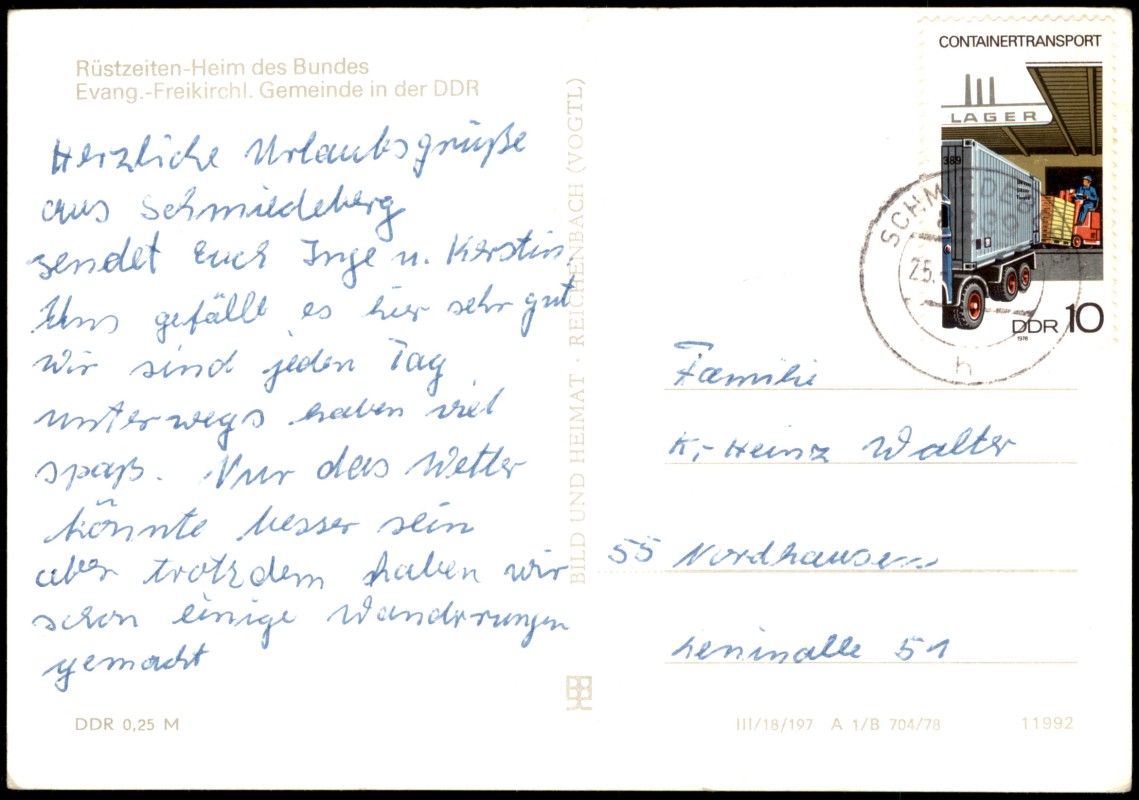 Rüstzeiten-Heim des Bundes
Evang.-Freikirchl. Gemeinde in der DDR
Herzliche Urlaubsgrüße
aus Schmiedeberg
sendet Euch Inge u. Kerstin.
Uns gefällt es hier sehr gut
Wir sind jeden Tag
unterwegs haben viel
spaß. Nur das Wetter
könnte besser sein
aber trotzdem haben wir
schon einige Wanderungen
gemacht
DDR 0,25 M
BILD UND HEIMAT · REICHENBACH (VOGTL)
CONTAINERTRANSPORT
LAGER
389
DDR 10
1978
25.
h
Familie
K,-Heinz Walter
55 Nordhausen
Leninalle 51
III/18/197 A 1/B 704/78 11992